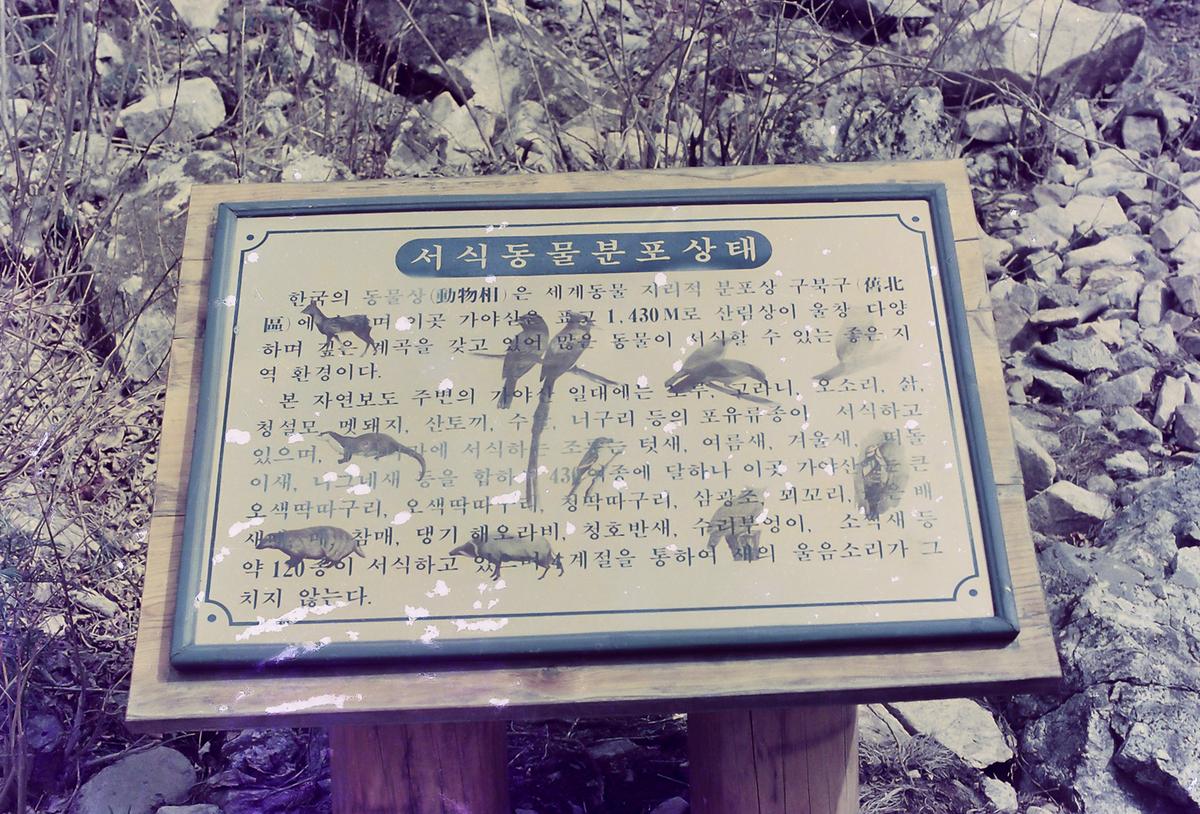 서식동물분포상태
한국의 동물상(動物相)은 세계동물 지리적 분포상 구북구(舊北
區)에 며 이곳 가야산은 표고 1.430M로 산림상이 울창 다양
하며 깊은 계곡을 갖고 있어 많은 동물이 서식할 수 있는 좋은 지
역 환경이다.
본 자연보도 주변의 가야산 일대에는 노루, 고라니, 오소리, 삵,
청설모, 멧돼지, 산토끼, 너구리 등의 포유류종이 서식하고
있으며, 에 서식하는 조류는 텃새, 여름새, 겨울새, 떠돌
이새, 나그네새 등을 합하 430여종에 달하나 이곳 가야산 는 큰
오색딱따구리, 오색딱따구리, 청딱따구리, 삼광조, 꾀꼬리, 은 배
새매, 참매, 댕기 해오라비, 청호반새, 수리부엉이, 소쩍새 등
약 120종이 서식하고 있으며 4계절을 통하여 새의 울음소리가 그
치지 않는다.